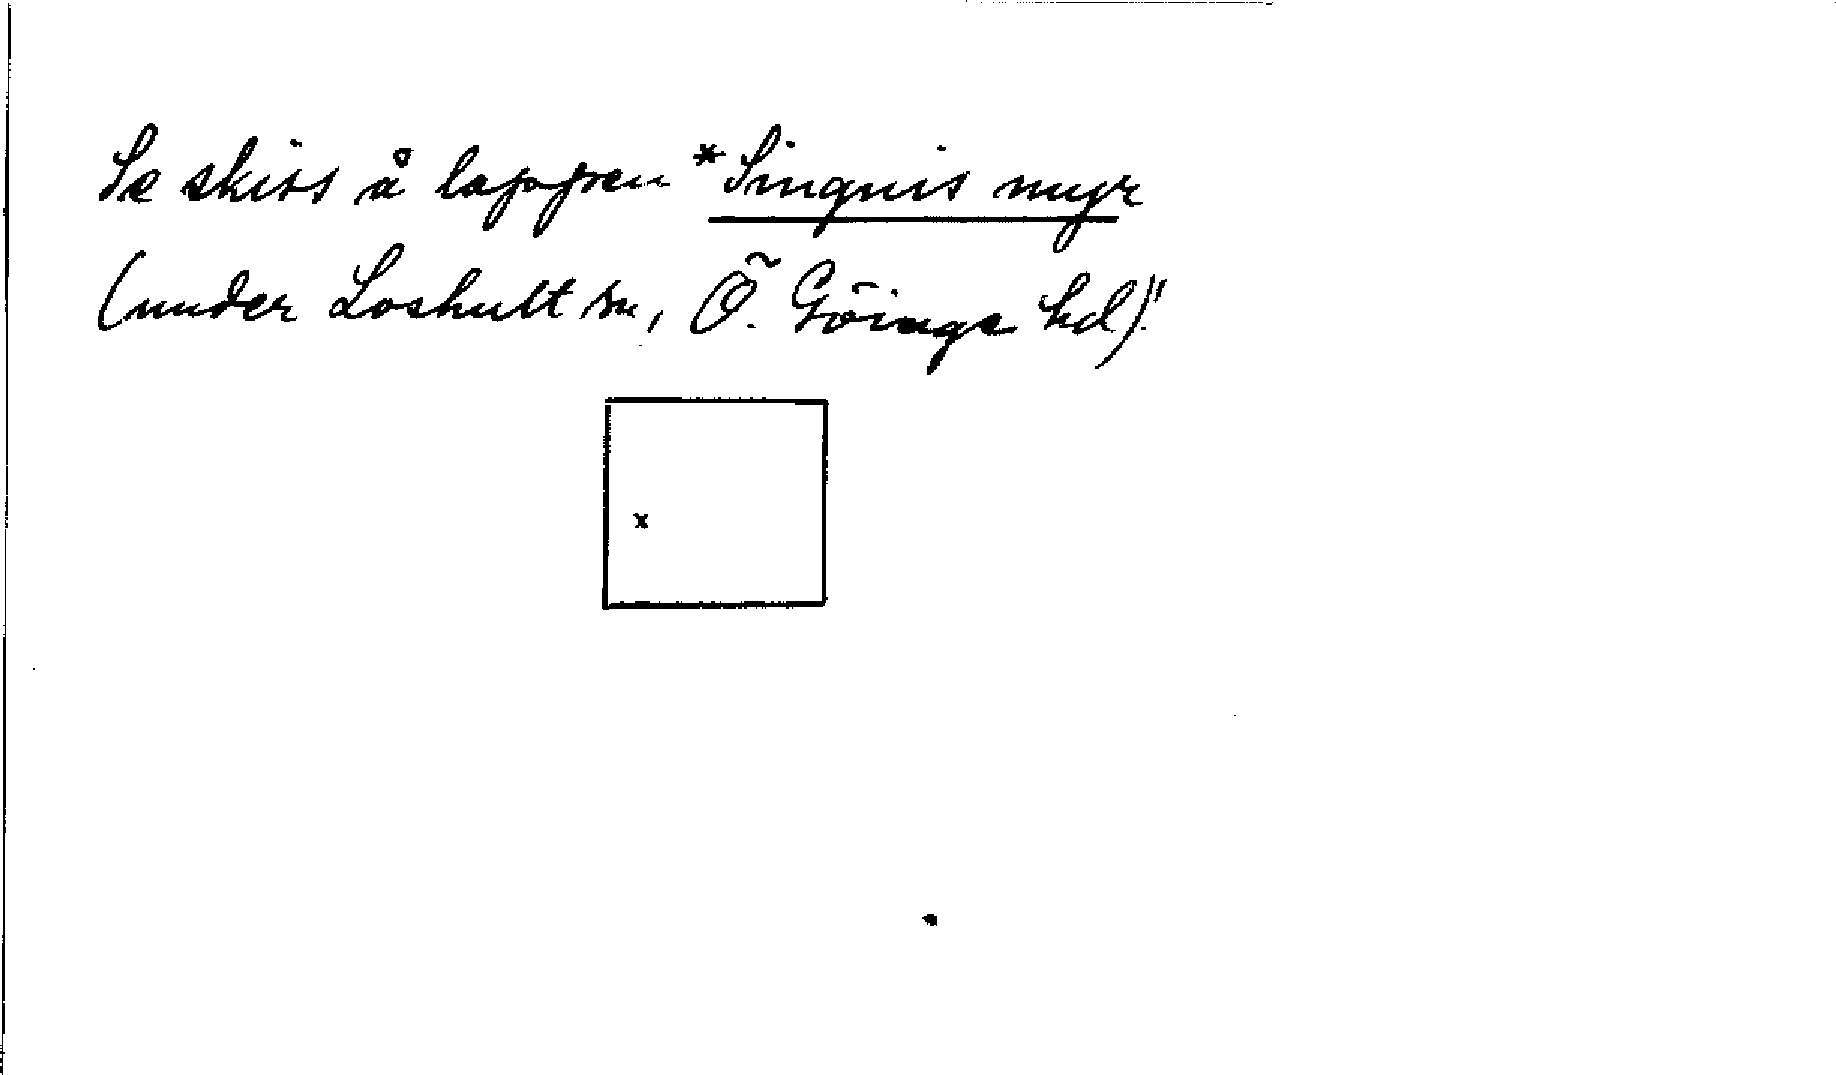 Se skiss å lappen *Singnis myr
(under Loshult sn, Ö. Göinge hd)!
x